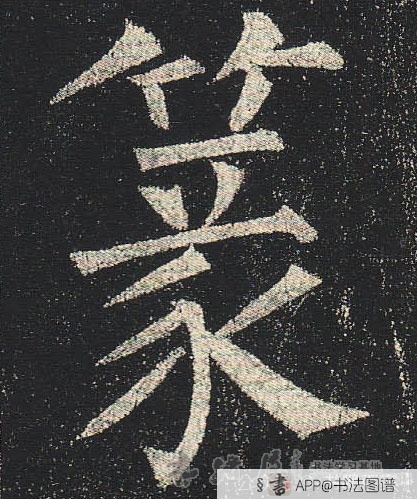 篆
書 APP@书法图谱